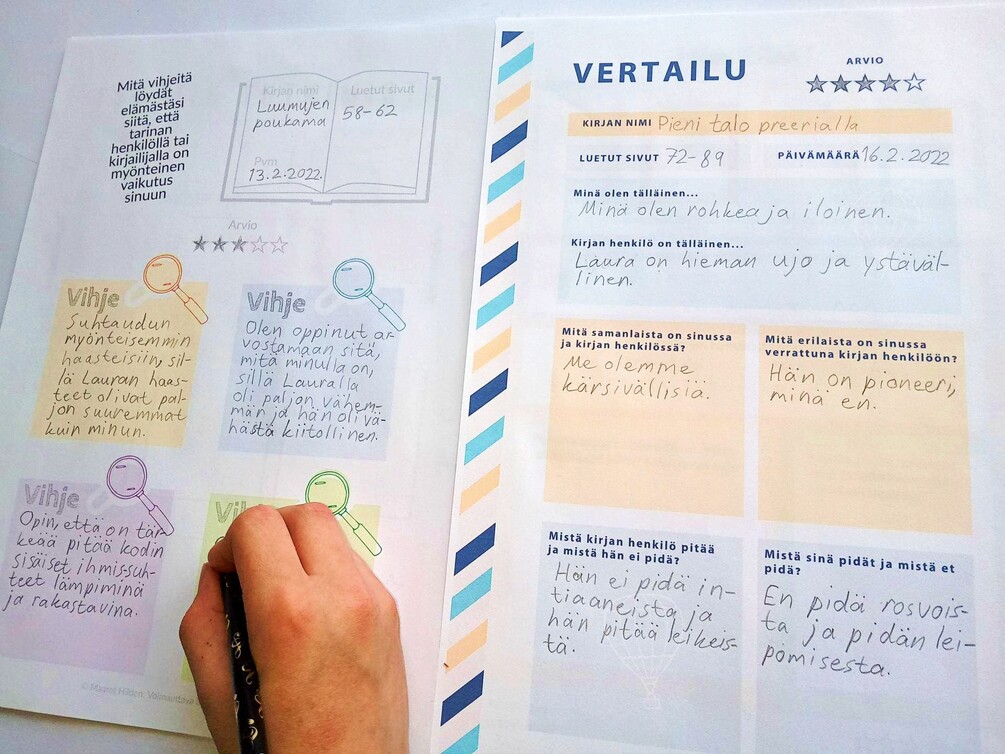 Mitä vihjeitä
löydät
elämästäsi
siitä, että
tarinan
henkilöllä tai
kirjailijalla on
myönteinen
vaikutus
sinuun
Kirjan nimi
Luumujen
poukama
Luetut sivut
58-62
Pvm
13.2.2022.
Arvio
Vihje
Suhtaudun
myönteisemmin
haasteisiin, sil-
lä Lauran haas-
teet olivat pal-
jon suuremmat
kuin minun.
Vihje
Olen oppinut ar-
vostamaan sitä,
mitä minulla on,
sillä Lauralla
oli paljon vähem-
män ja hän oli vä-
hästä kiitollinen.
Vihje
Opin, että on tär-
keää pitää kodin
sisäiset ihmissuh-
teet lämpiminä
ja rakastavina.
VERTAILU
ARVIO
KIRJAN NIMI Pieni talo preerialla
LUETUT SIVUT 72-89
PÄIVÄMÄÄRÄ 16.2.2022
Minä olen tälläinen...
Minä olen rohkea ja iloinen.
Kirjan henkilö on tälläinen...
Laura on hieman ujo ja ystäväl-
linen.
Mitä samanlaista on sinussa
ja kirjan henkilössä?
Me olemme
kärsivällisiä.
Mitä erilaista on sinussa
verrattuna kirjan henkilöön?
Hän on pioneeri,
minä en.
Mistä kirjan henkilö pitää
ja mistä hän ei pidä?
Hän ei pidä in-
tiaaneista ja
hän pitää leikeis-
tä.
Mistä sinä pidät ja mistä et
pidä?
En pidä rosvois-
ta ja pidän lei-
pomisesta.